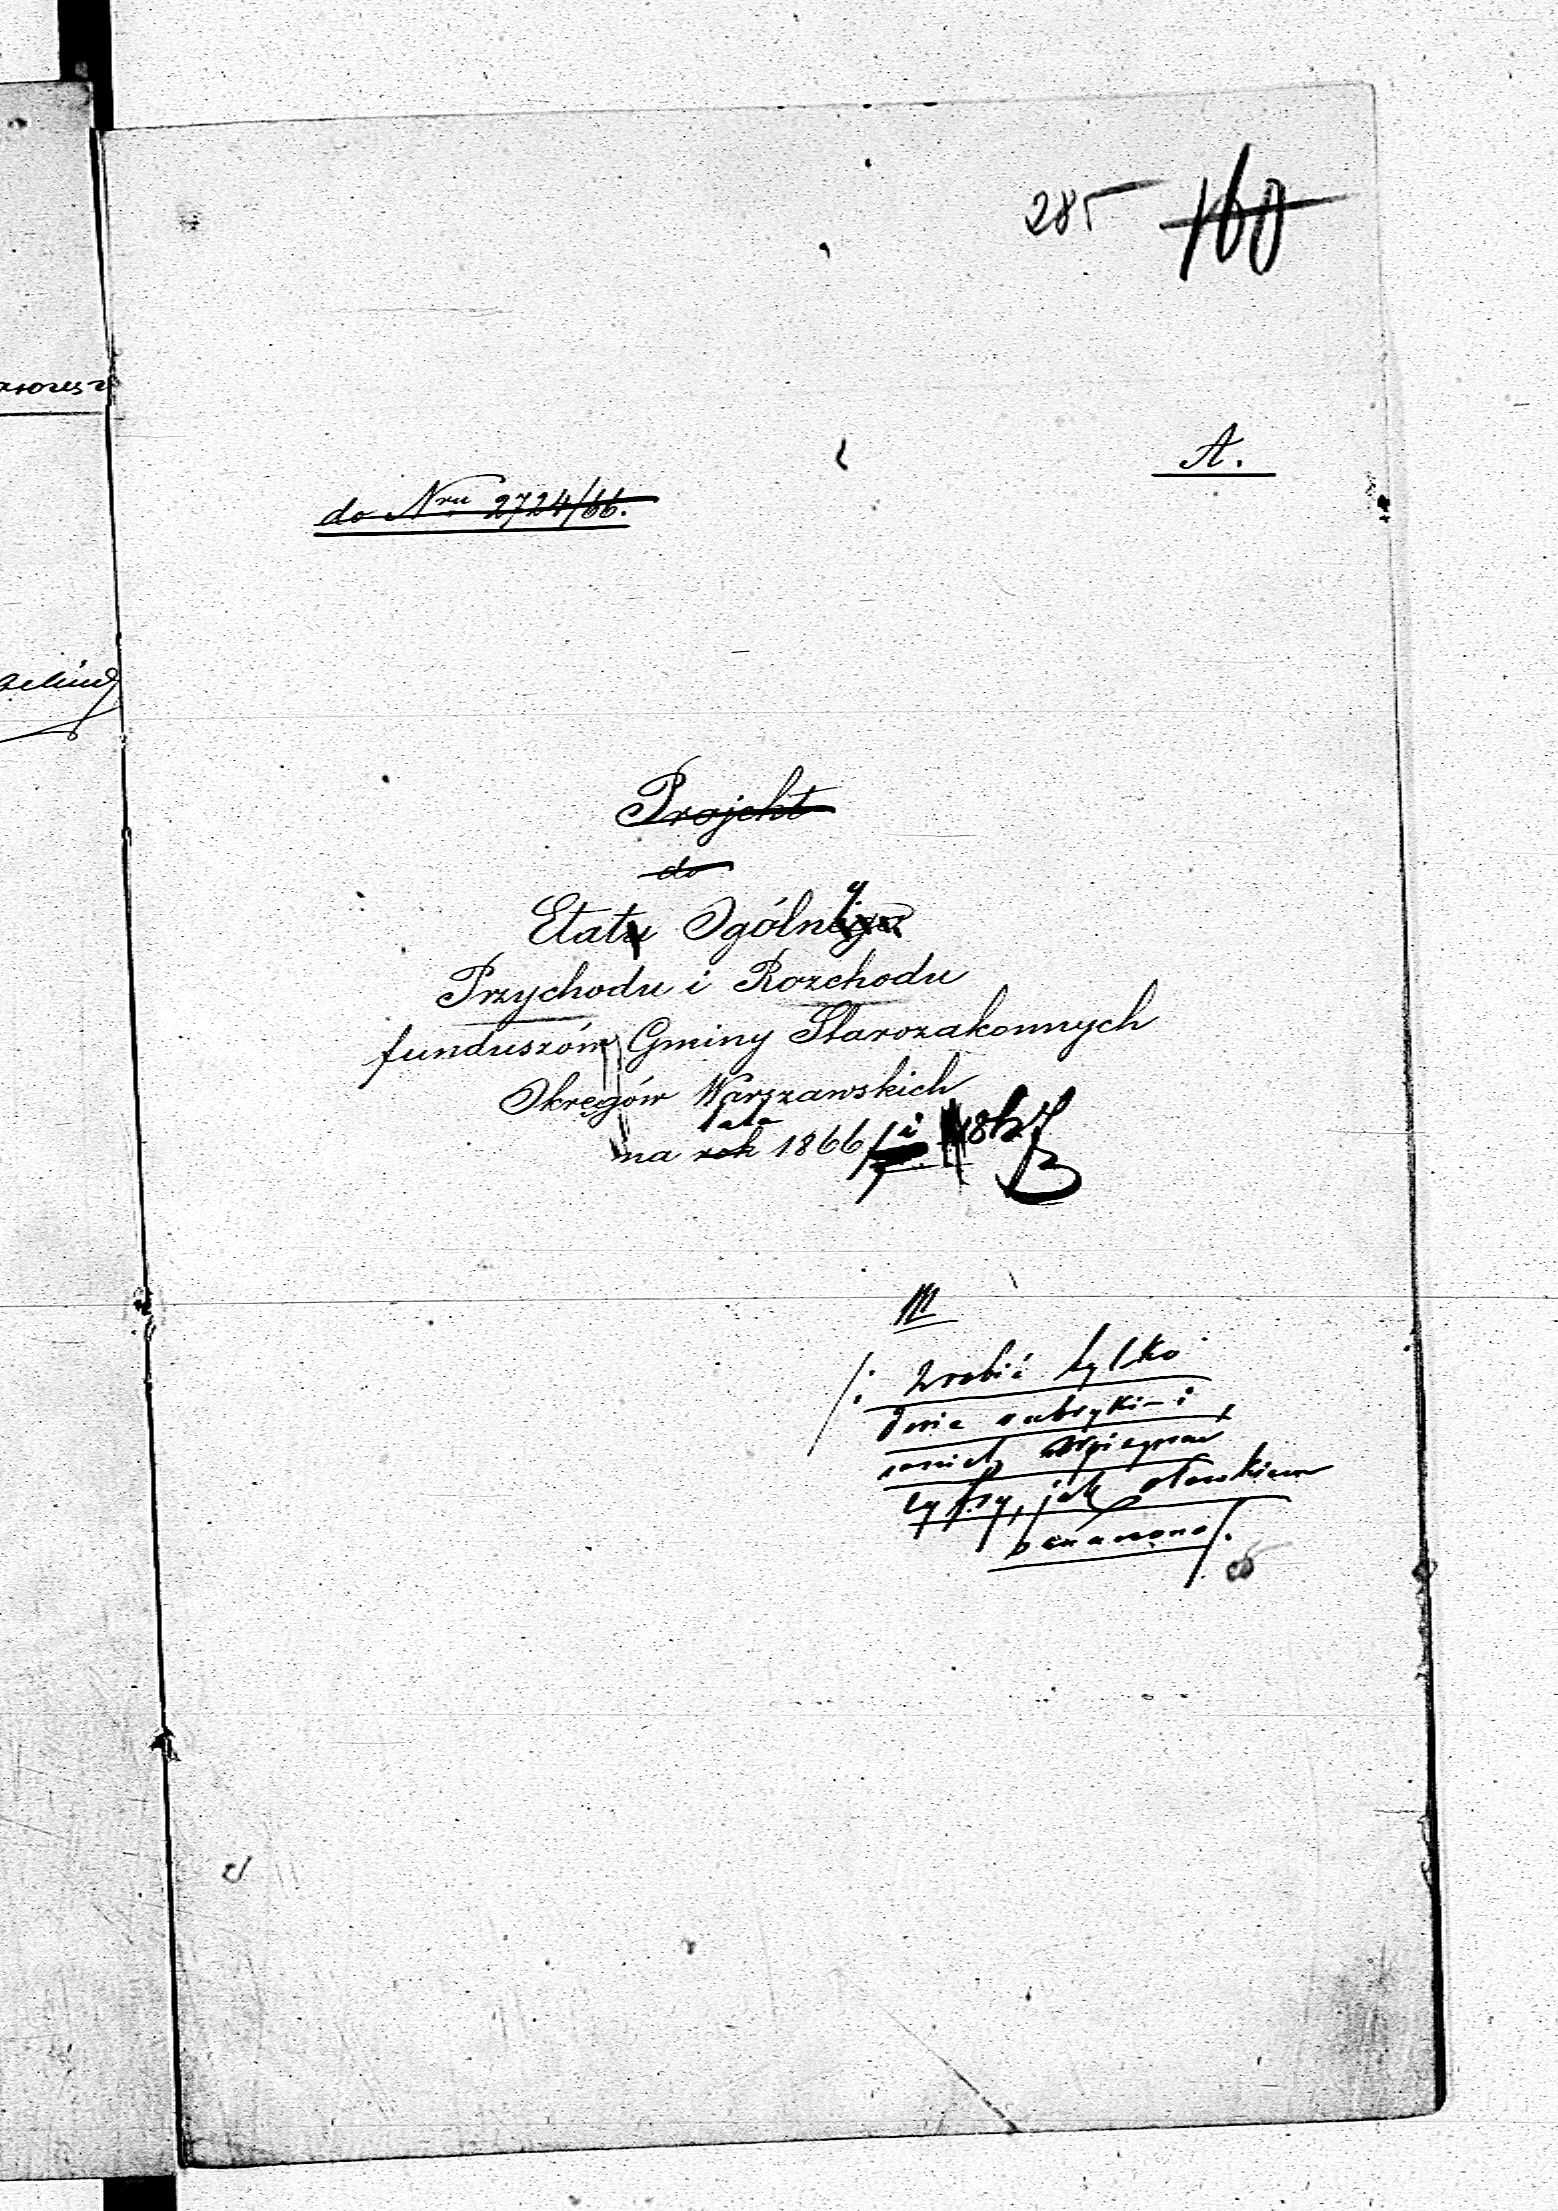 285 160
A.
do Nru 2724/66.
Projekt
do
Etatu Ogólnego y
Przychodu i Rozchodu
funduszów Gminy Starozakonnych
Okręgów Warszawskich
lata
na rok 1866/ i 1867
/: Zrobić tylko
dwie rubryki i
w nich wpisywać
cyfry, jak ołówkiem
:/